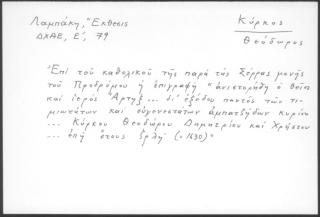 Λαμπάκη, "Ἔκθεσις
ΔΧΑΕ, Ε', 79
Κύρκος
Θεόδωρος
"Ἐπί τοῦ καθολικοῦ τῆς παρά τάς Σέρρας μονῆς
τοῦ Προδρόμου ἡ ἐπιγραφή "ἀνιστορήθη ὁ θεῖος
καί ἱερός Ἄρτηξ ... δι' ἐξόδου παντός τῶν τι-
μιωτάτων καί εὐγενεστάτων ἀμπατζήδων κυρίου
... Κύρκου Θεοδώρου Δημητρίου καί Χρήστου
... ἐπί ἔτους ζρλη' (=1630)."